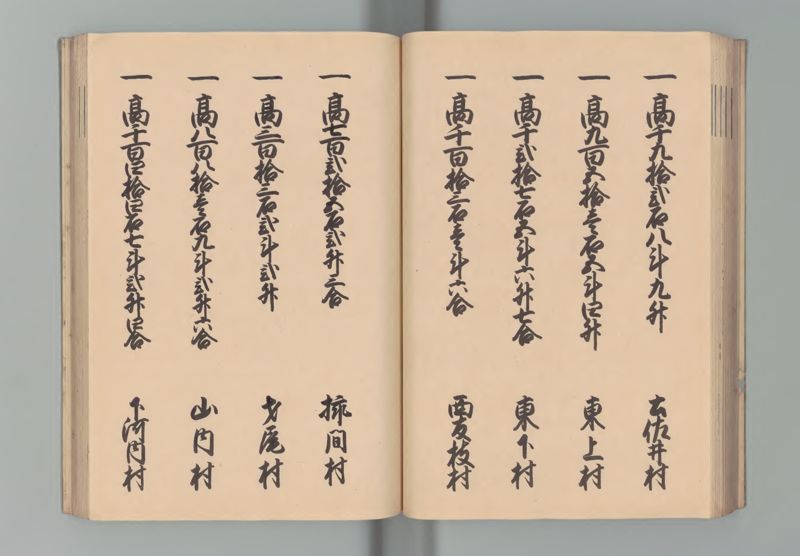 一 高千九拾弐石八斗九升 土佐井村
一 高九百五拾壱石五斗四升 東上村
一 高千弐拾七石五斗六升七合 東下村
一 高千百拾三石壱斗六合 西友枝村
一 高七百弐拾五石弐升三合 挾間村
一 高三百拾三石弐斗弐升 才尾村
一 高八百八拾壱石九斗弐升六合 山内村
一 高千百四拾四石七斗弐升四合 下河内村